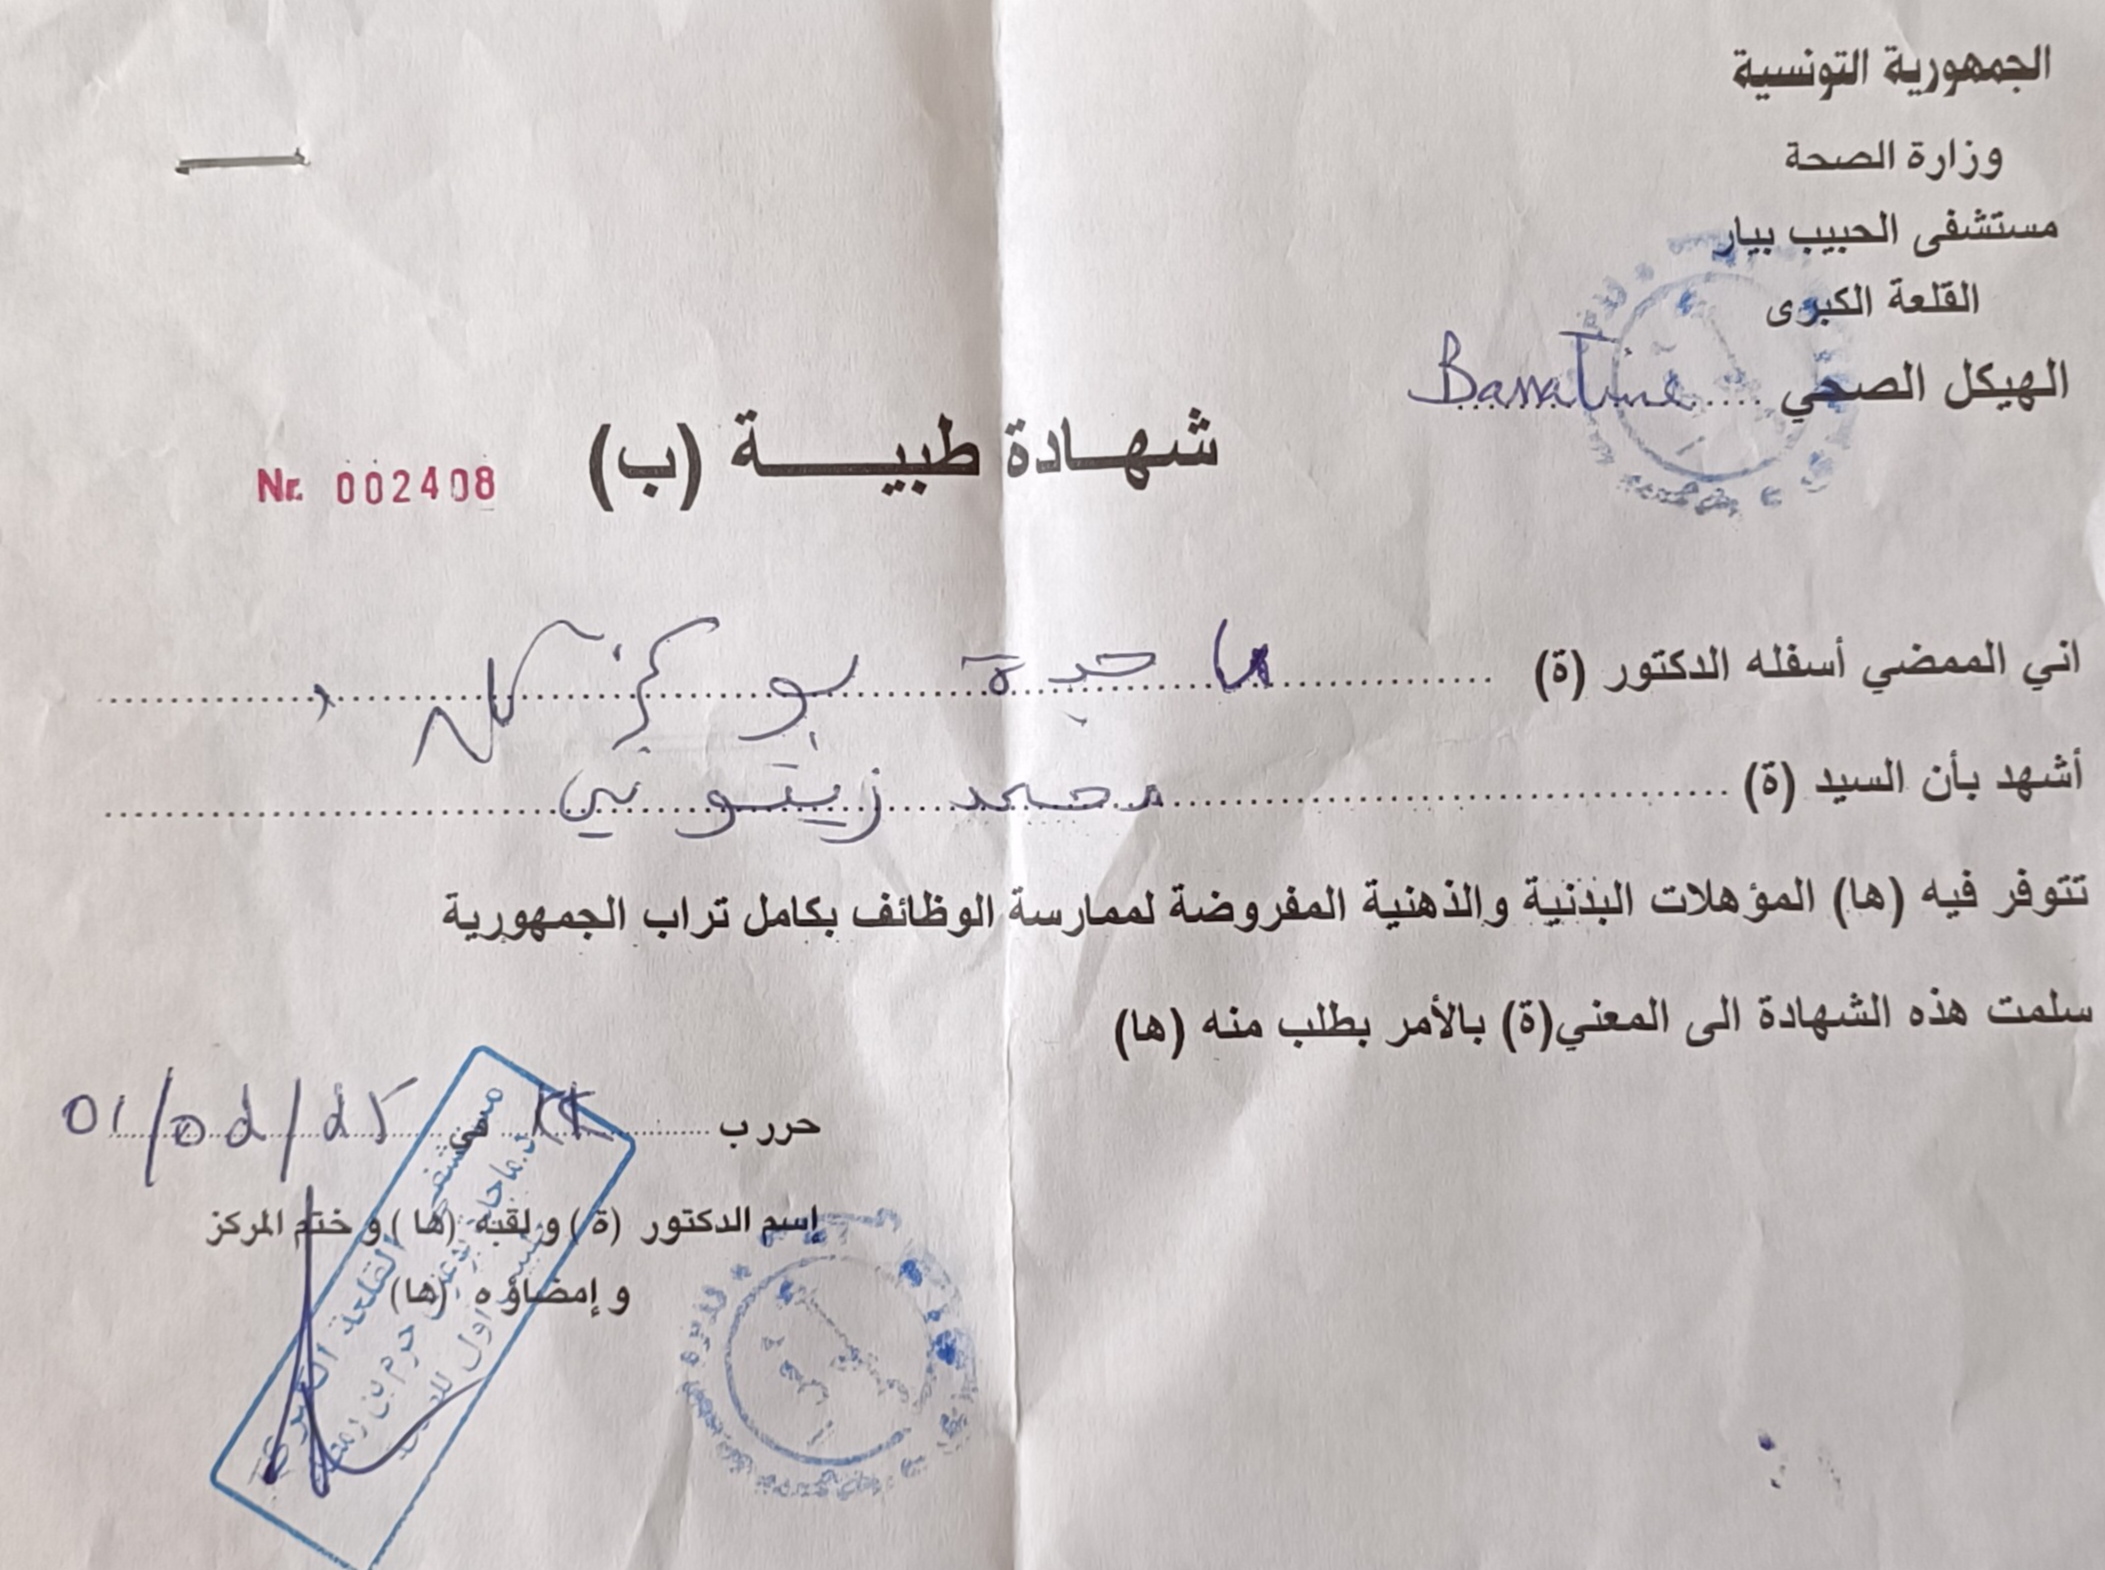 الجمهورية التونسية
وزارة الصحة
مستشفى الحبيب بيار
القلعة الكبرى
الهيكل الصحي
شهادة طبية (ب)
Nr. 002408
اني الممضي أسفله الدكتور (ة)
أشهد بأن السيد (ة) محمد زيتوني
تتوفر فيه (ها) المؤهلات البدنية والذهنية المفروضة لممارسة الوظائف بكامل تراب الجمهورية
سلمت هذه الشهادة الى المعني(ة) بالأمر بطلب منه (ها)
حرر ب KK في 01/02/25
إسم الدكتور (ة) و لقبه (ها) و ختم المركز
و إمضاؤه (ها)
مستشفى القلعة الكبرى